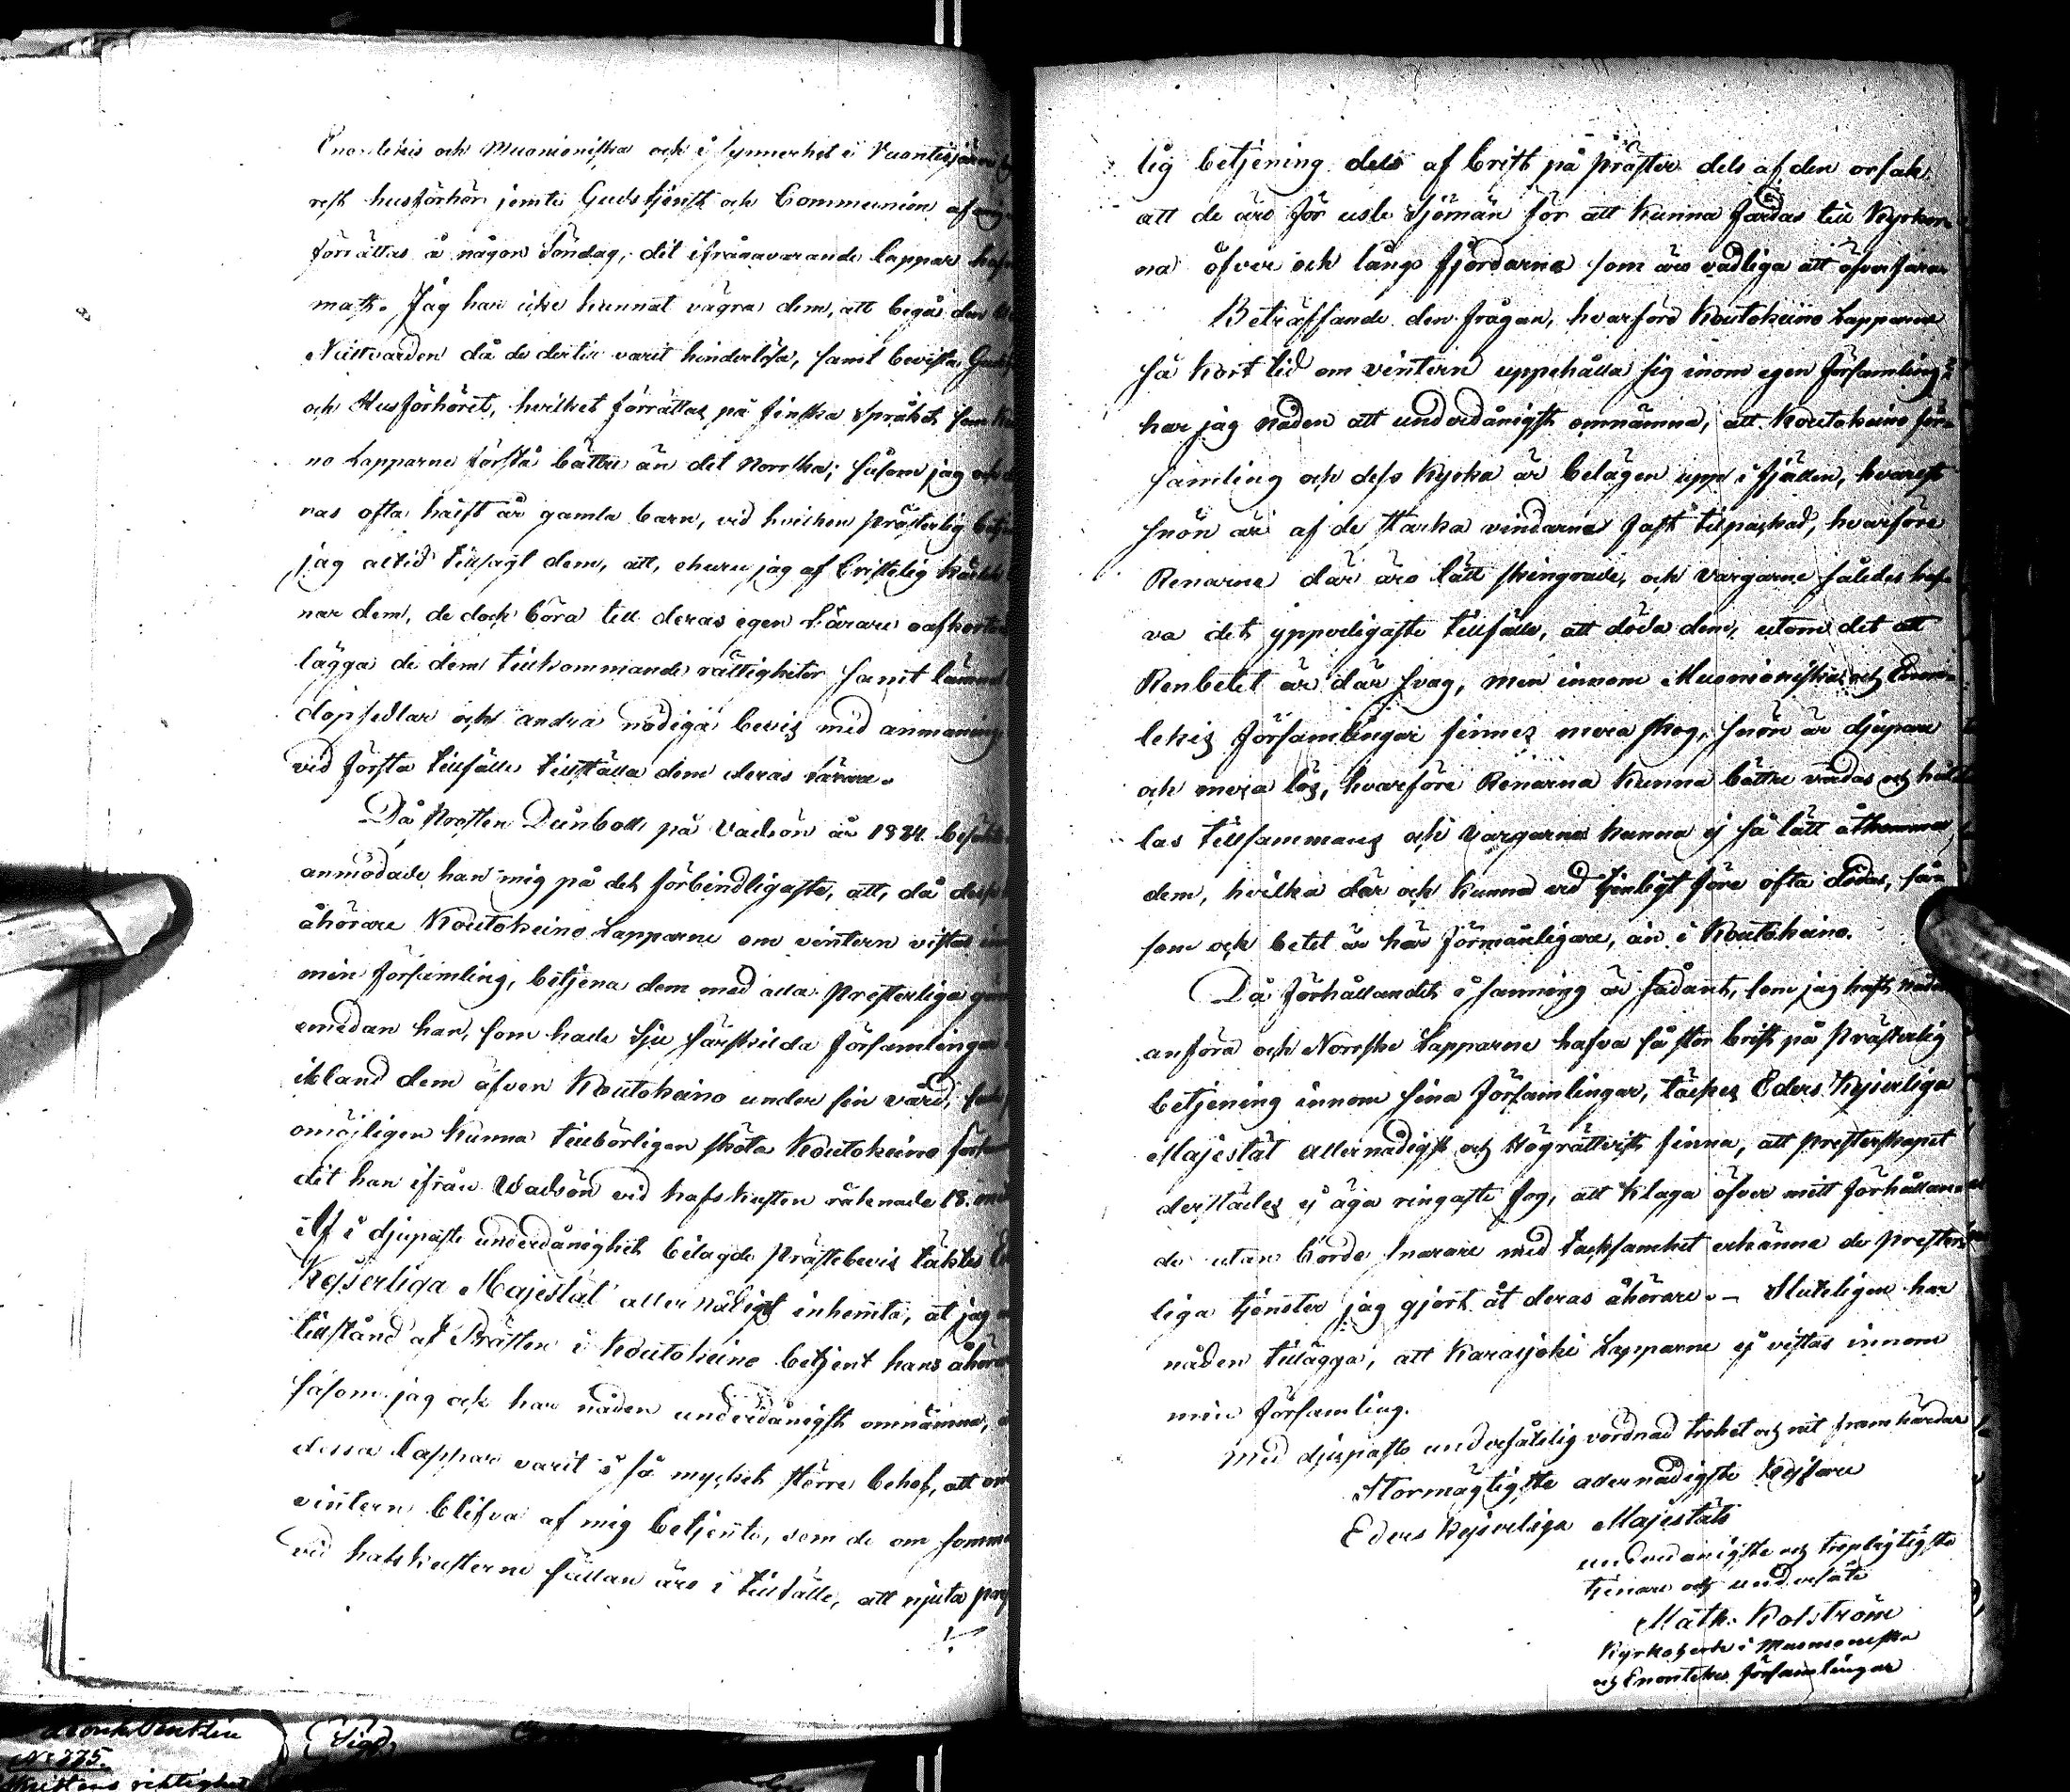 Enontekis och Muonioniska och i synnerhet i Vuontisjärvi
rest husförhör jemte Gudstjenst och Communion af mig
förrättas å någon Söndag, dit ifrågavarande Lappar haf
mat. Jag har icke kunnat vägra dem, att begå den
Nattvarden då de dertill varit hinderlösa, samt bevista Guds
och Husförhöret, hvilket förrättas på finska Språket, som Kou
no Lapparne förstå bättre än det Norrska; såsom jag och de
ras ofta halft år gamla barn, vid hvilken prästerlig betje
jag altid tillsagt dem, att, ehuru jag af Cristelig kärlek
nar dem, de dock böra till deras egen Lärare oafkortad
lägga de dem tillkommande rättigheter samt lämnat
dopsedlar och andra nödiga bevis med anmaning
vid första tillfälle tillställa dem deras Lärare.
Då Prosten Dunboll på Vadsön år 1824 besökte
anmodade han mig på det förbindligaste, att, då desse
åhörare Koutokeino Lapparne om vintern vistas inom
min Församling, betjena dem med alla Presterliga gör
emedan han, som hade Sju särskilda Församlingar
ibland dem äfven Koutokeino under sin vård, sade
omöjligen kunna tillbörligen sköta Koutokeino Försam
dit han ifrån Wadsön vid hafskusten räknade 18. mil
Af i djupaste underdånighet bilagde Prästebevis täktes Ed
Kejserliga Majestät allernådigst inhemta, at jag
tillstånd af Prästen i Koutokeino betjent hans åhöra
såsom jag ock har nåden underdånigst omnämna, at
dessa Lappar varit i så mycket större behof, att om
vintern blifva af mig betjente, som de om somma
vid hafskusterne sällan äro i tillfälle, att njuta präs
lig betjening dels af brist på präster dels af den orsak
att de äro för usle Sjömän för att kunna färdas till Kyrkor
na öfver och längs fjördarne som äro vådliga att öfverfara
Beträffande den frågan, hvarföre Koutokeino Lapparne
så kort tid om vintern uppehålla sig inom egen Församling,
har jag nåden att underdånigst omnämna, att Koutokeino för
samling och dess Kyrka är belägen upp i fjällen, hvarest
snön är af de starka vindarne fast tilpackad, hvarföre
Renarne där äro lätt skingrade, och vargarne således haf
va det ypperligaste tillfälle, att döda dem, utom det att
Renbetet är där svag, men innom Muonioniska och Enon
tekis Församlingar finnes mera skog, snön är djupare
och mera lös, hvarföre Renarna kunna bättre vårdas och hål
las tillsammans och Vargarna kunna ej så lätt åtkomma
dem, hvilka där och kunna vid tjenligt före ofta dödas, så
som och betet är här förmånligare, än i Koutokeino.
Då förhållandet i sanning är sådant, som jag haft nåden
anföra och Norrske Lapparne hafva så stor brist på Prästerlig
betjening innom sina Församlingar, täckes Eders Kejserliga
Majestät allernådigst och Högrättvist finna, att presterskapet
derstädes ej äga ringaste fog, att klaga öfver mitt förhållan
de utan borde snarare med tacksamhet erkänna de prester
liga tjenster jag gjort åt deras åhörare. – Sluteligen har
nåden tillägga, att Karasjoki Lapparne ej vistas innom
min Församling.
Med djupaste undersåtelig vördnad trohet och nit framhärdar
Stormägtigste allernådigste Kejsare
Eders Kejserliga Majestäts
underdånigste och tropligtigste
tjenare och undersåte
Math. Kolström
Kyrkoherde i Muonioniska
och Enontekis Församlingar
N: 225.
(Sigd)